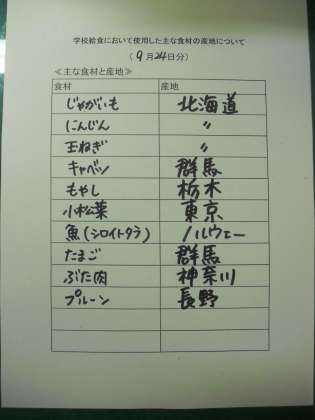 学校給食において使用した主な食材の産地について
(9月24日分)
≪主な食材と産地≫
食材 産地
じゃがいも 北海道
にんじん 〃
玉ねぎ 〃
キャベツ 群馬
もやし 栃木
小松菜 東京
魚(シロイトダラ) ノルウェー
たまご 群馬
ぶた肉 神奈川
プルーン 長野